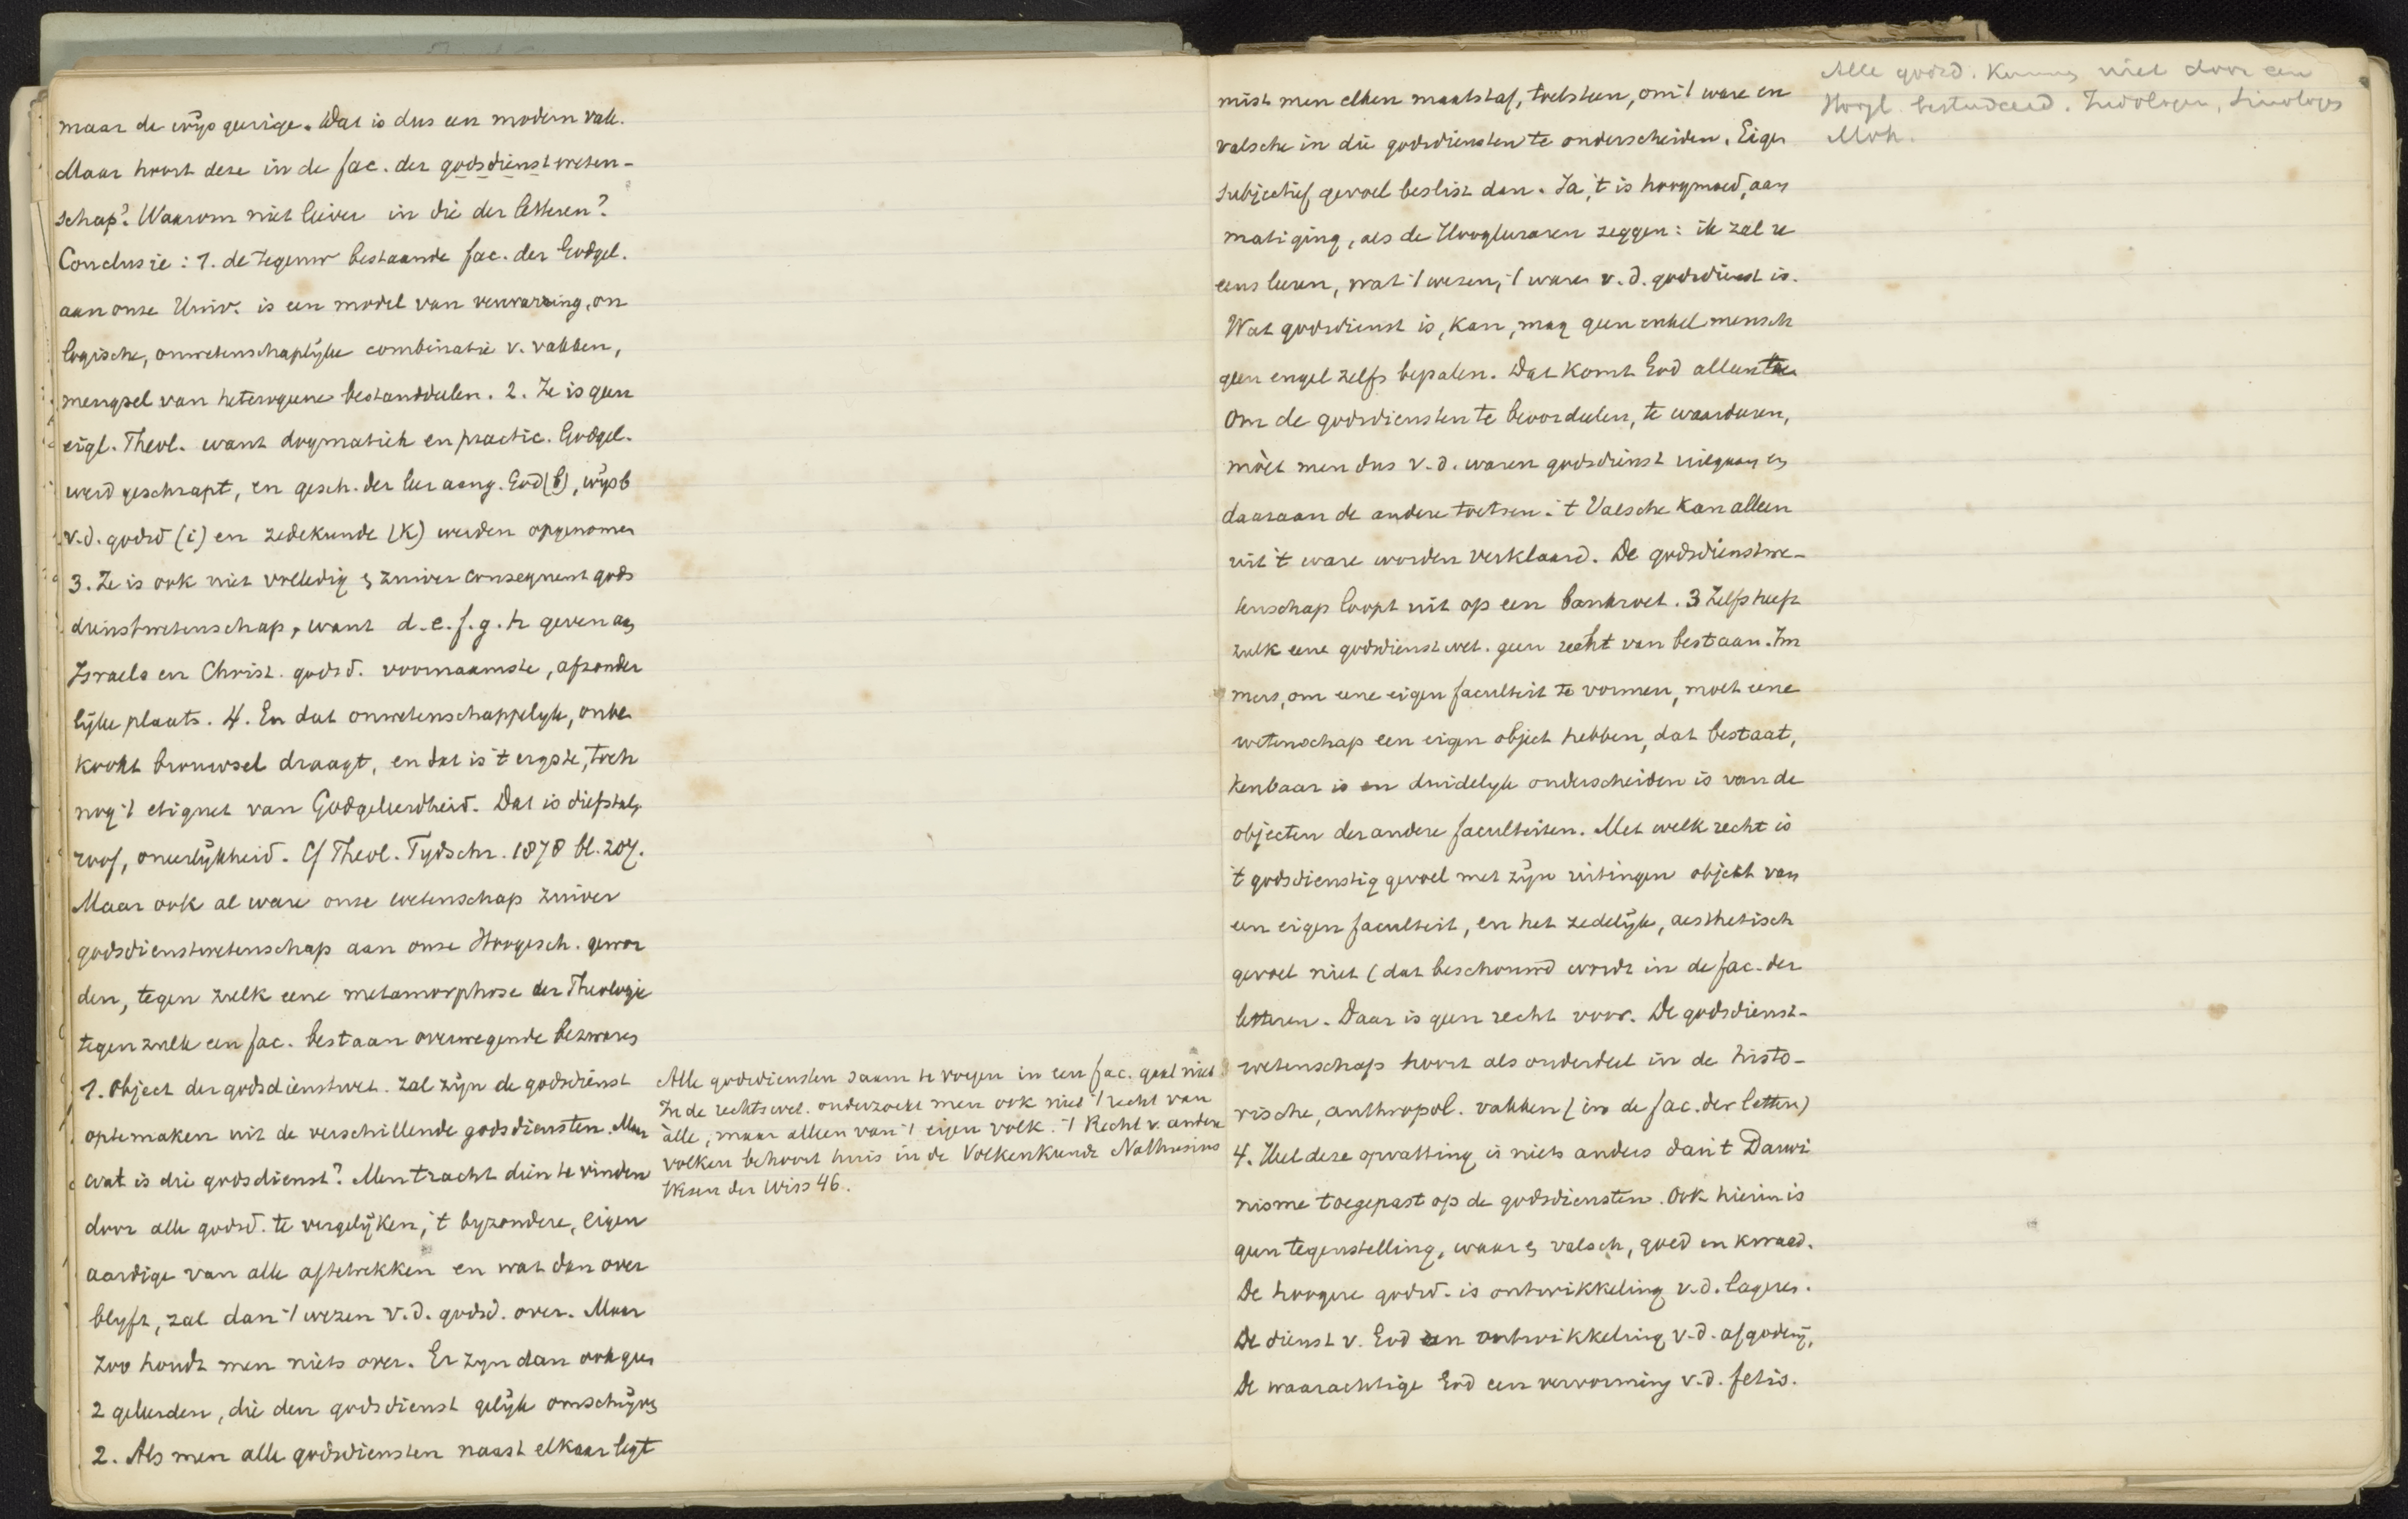 maar de wijsgeerige. Dat is dus een modern vak.
Maar hoort deze in de fac. der godsdienstweten-
schap? Waarom niet liever in die der letteren?
Conclusie: 1. de tegenw bestaande fac. der Godgel.
aan onze Univ. is een model van verwarring, on
logische, onwetenschaplijke combinatie v. vakken,
mengsel van heterogene bestanddeelen. 2. Ze is geen
eigl. Theol. want dogmatiek en practic. Godgel.
werd geschrapt, en gesch. der leer aang. God (b), wijsb
v.d. godsd (i) en zedekunde (k) werden opgenomen
3. Ze is ook niet volledig en zuiver consequent gods
dienstwetenschap, want d.e.f.g.h geven aan
Israels en Christ. godsd. voornaamste, afzonder
lijke plaats. 4. En dat onwetenschappelyk, onbe
kookt brouwsel draagt, en dat is 't ergste, toch
nog 't etiquet van Godgeleerdheid. Dat is diefstal,
roof, oneerlijkheid. Cf Theol. Tydschr. 1878 bl. 207.
Maar ook al ware onze wetenschap zuiver
godsdienstwetenschap aan onze Hoogesch. gewor
den, tegen zulk eene metamorphose der Theologie
tegen zulk een fac. bestaan overwegende bezwaren
1. Object der godsdienstwet. zal zijn de godsdienst
optemaken uit de verschillende godsdiensten. Maar
wat is die godsdienst? Men tracht dien te vinden
door alle godsd. te vergelijken, 't byzondere, eigen
aardige van alle aftetrekken en wat dan over
blyft, zal dan 't wezen v.d. godsd. over. Maar
zoo houdt men niets over. Er zyn dan ook geen
2 geleerden, die den godsdienst gelijk omschrijven
2. Als men alle godsdiensten naast elkaar legt
Alle godsdiensten saam te voegen in een fac. gaat niet
In de rechtswet. onderzoekt men ook niet 't recht van
alle, maar alleen van 't eigen volk. 't Recht v. andere
volken behoort thuis in de Volkenkunde Nathusius
Wesen der Wiss 46.
mist men elken maatstaf, toetsteen, om 't ware en
valsche in die godsdiensten te onderscheiden. Eigen
subjectief gevoel beslist dan. Ja, 't is hoogmoed, aan
matiging, als de Hoogleeraren zeggen: ik zal u
eens leeren, wat 't wezen, 't ware v.d. godsdienst is.
Wat godsdienst is, kan, mag geen enkel mensch
geen engel zelfs bepalen. Dat komt God alleen toe
Om de godsdiensten te beoordeelen, te waardeeren,
mòet men dus v.d. waren godsdienst uitgaan en
daaraan de andere toetsen. 't Valsche kan alleen
uit 't ware worden verklaard. De godsdienstwe-
tenschap loopt uit op een bankroet. 3 Zelfs heeft
zulk eene godsdienstwet. geen recht van bestaan. Im
mers, om eene eigen faculteit te vormen, moet eene
wetenschap een eigen object hebben, dat bestaat,
kenbaar is en duidelyk onderscheiden is van de
objecten der andere faculteiten. Met welk recht is
't godsdienstig gevoel met zijn uitingen objekt van
een eigen faculteit, en het zedelijk, aesthetisch
gevoel niet (dat beschouwd wordt in de fac. der
letteren. Daar is geen recht voor. De godsdienst-
wetenschap hoort als onderdeel in de histo-
rische, anthropol. vakken (in de fac. der letteren)
4. Heel deze opvatting is niets anders dan 't Darwi
nisme toegepast op de godsdiensten. Ook hierin is
geen tegenstelling, waar en valsch, goed en kwaad.
De hoogere godsd. is ontwikkeling v.d. lagere.
De dienst v. God een ontwikkeling v.d. afgodery,
De waarachtige God een vervorming v.d. fetis.
Alle godsd. kunnen niet door een
Hoogl. bestudeerd. Indologen, Sinologen
Moh.